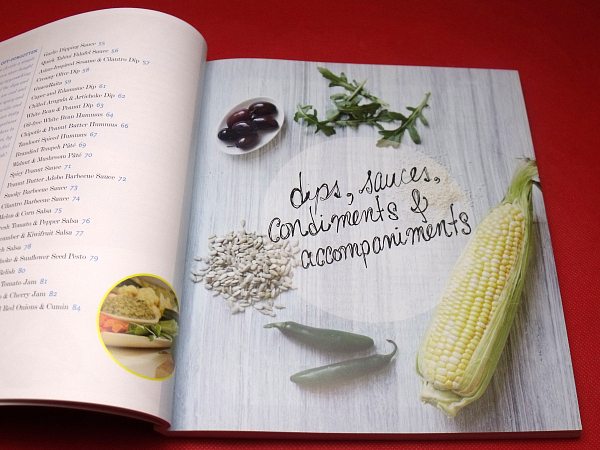 OFT-FORGOTTEN
Garlic Dipping Sauce 55
Quick Tahini Falafel Sauce 56
Asian-Inspired Sesame & Cilantro Dip 57
Creamy Olive Dip 58
GuacaRaita 59
Caper and Edamame Dip 61
Chilled Arugula & Artichoke Dip 62
White Bean & Peanut Dip 63
Oil-free White Bean Hummus 64
Chipotle & Peanut Butter Hummus 66
Tandoori Spiced Hummus 67
Brandied Tempeh Pâté 69
Walnut & Mushroom Pâté 70
Spicy Peanut Sauce 71
Peanut Butter Adobo Barbecue Sauce 72
Smoky Barbecue Sauce 73
Cilantro Barbecue Sauce 74
Melon & Corn Salsa 75
Tomato & Pepper Salsa 76
& Kiwifruit Salsa 77
Salsa 78
& Sunflower Seed Pesto 79
Relish 80
Tomato Jam 81
& Cherry Jam 82
Red Onions & Cumin 84
dips, sauces,
condiments &
accompaniments